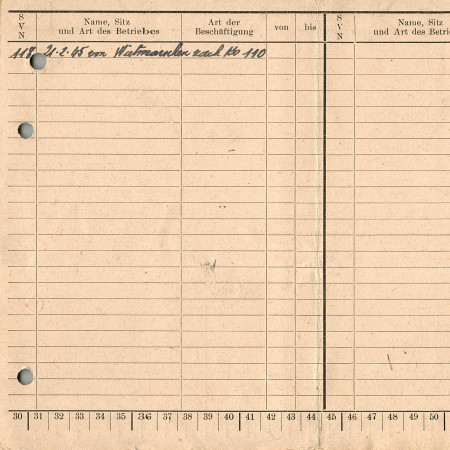 S V N
Name, Sitz
und Art des Betriebes
Art der
Beschäftigung
von
bis
S V N
Name, Sitz
und Art des Betrie
118 21.2.45 von Wietmarschen nach Ko 110
30 31 32 33 34 35 36 37 38 39 40 41 42 43 44 45 46 47 48 49 50